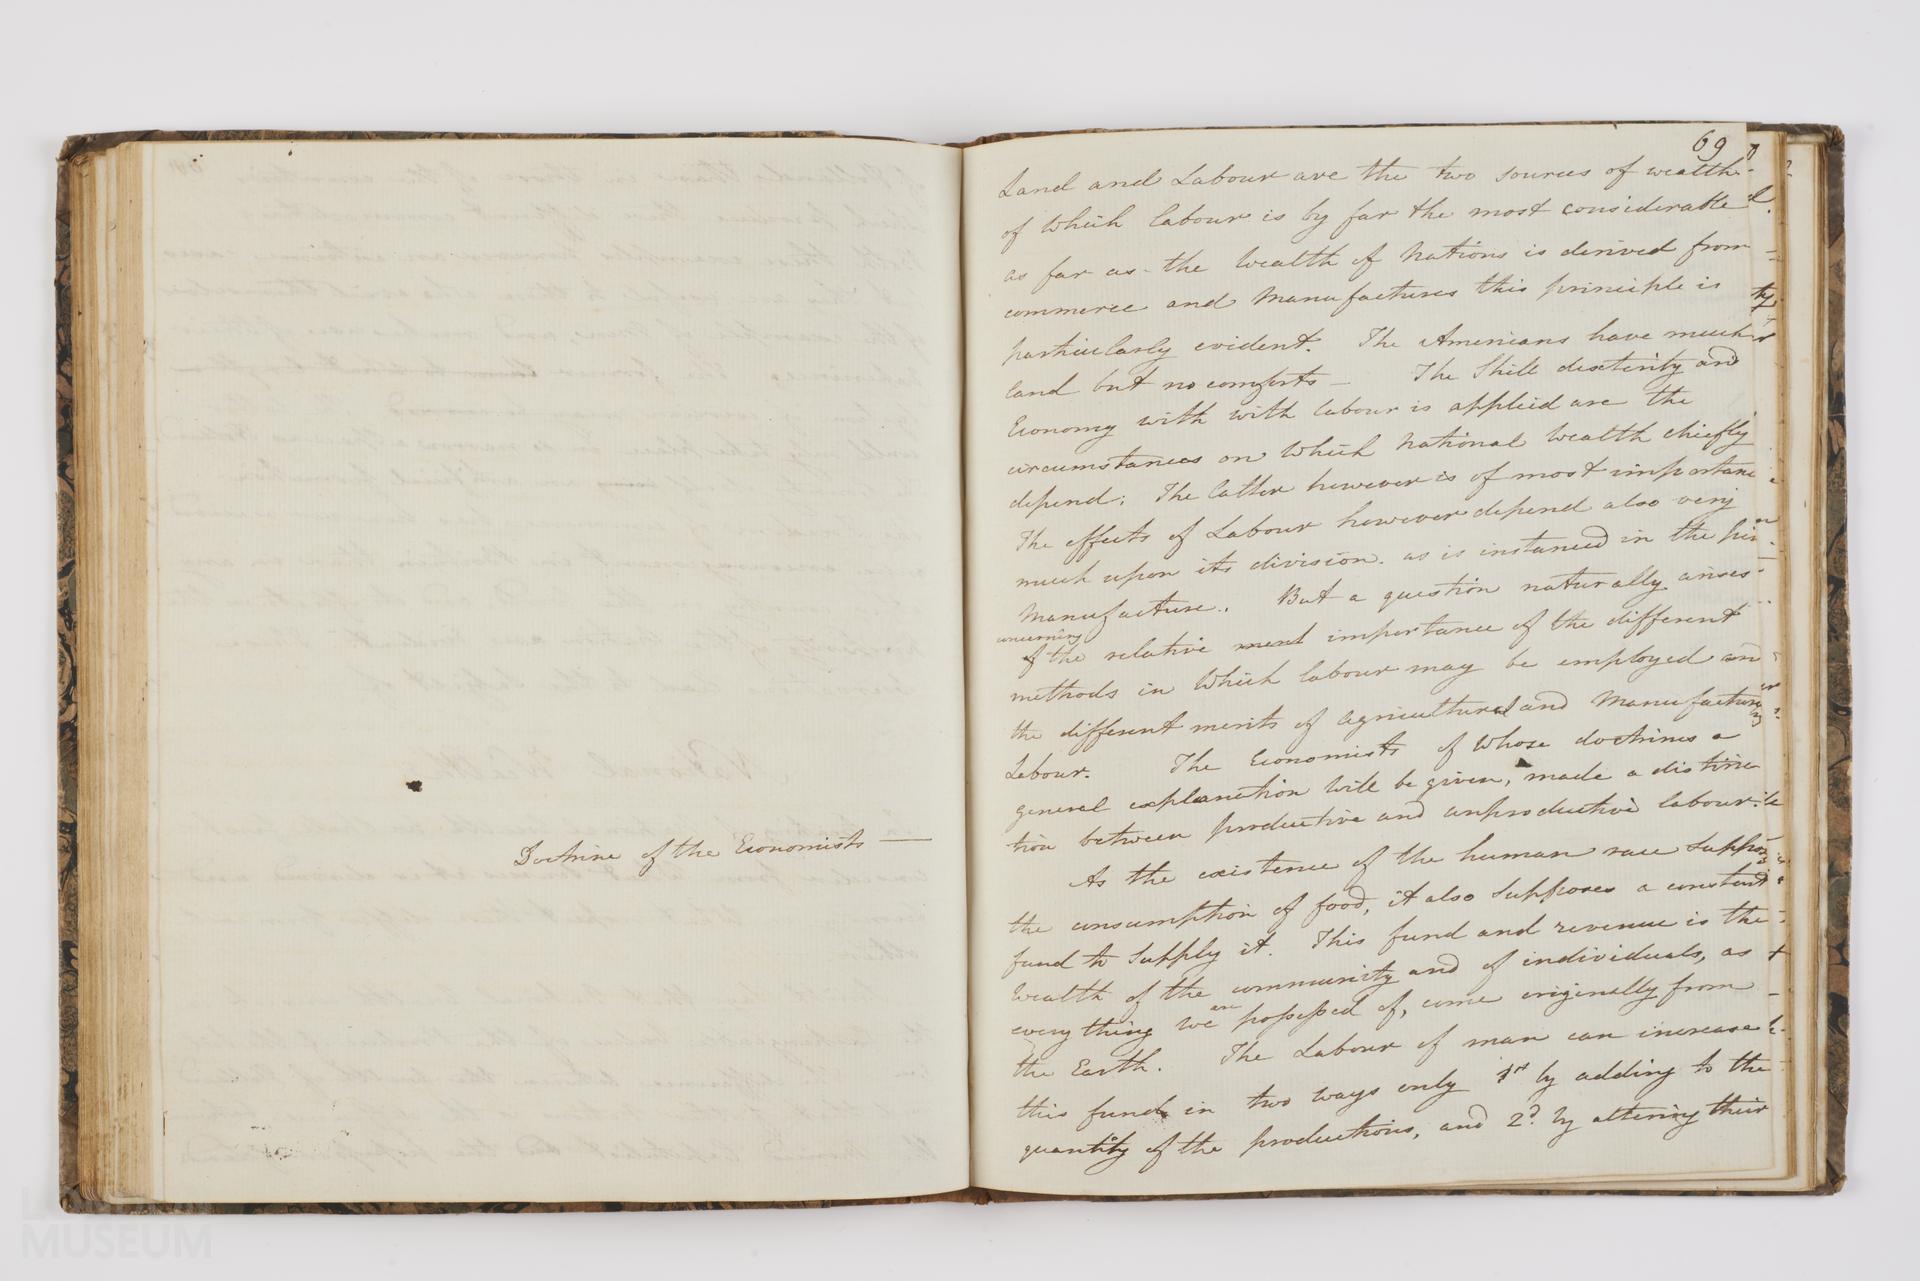 Doctrine of the Economists —
69
Land and Labour are the two sources of wealth
of which labour is by far the most considerable
as far as the wealth of Nations is derived from
commerce and Manufactures this principle is
particularly evident. The Amenians have much
land but no comforts — The Skill dexterity and
Economy with with labour is applied are the
circumstances on which National wealth chiefly
depend; The latter however is of most importance
The effects of Labour however depend also very
much upon its division. as is instanced in the pin
Manufacture. But a question naturally arises
concerning
of the relative merit importance of the different
methods in which labour may be employed and
the different merits of agricultural and Manufacturing
Labour. The Economists of whose doctrines a
general explanation will be given, made a distinc
tion between productive and unproductive labour.
As the existence of the human race suppos
the consumption of food, it also supposes a constant
fund to supply it. This fund and revenue is the
wealth of the community and of individuals, as
are
every thing we possessed of, come originally from
the Earth. The Labour of man can increase
this fund in two ways only 1st by adding to the
quantity of the productions, and 2d. by altering their
MUSEUM